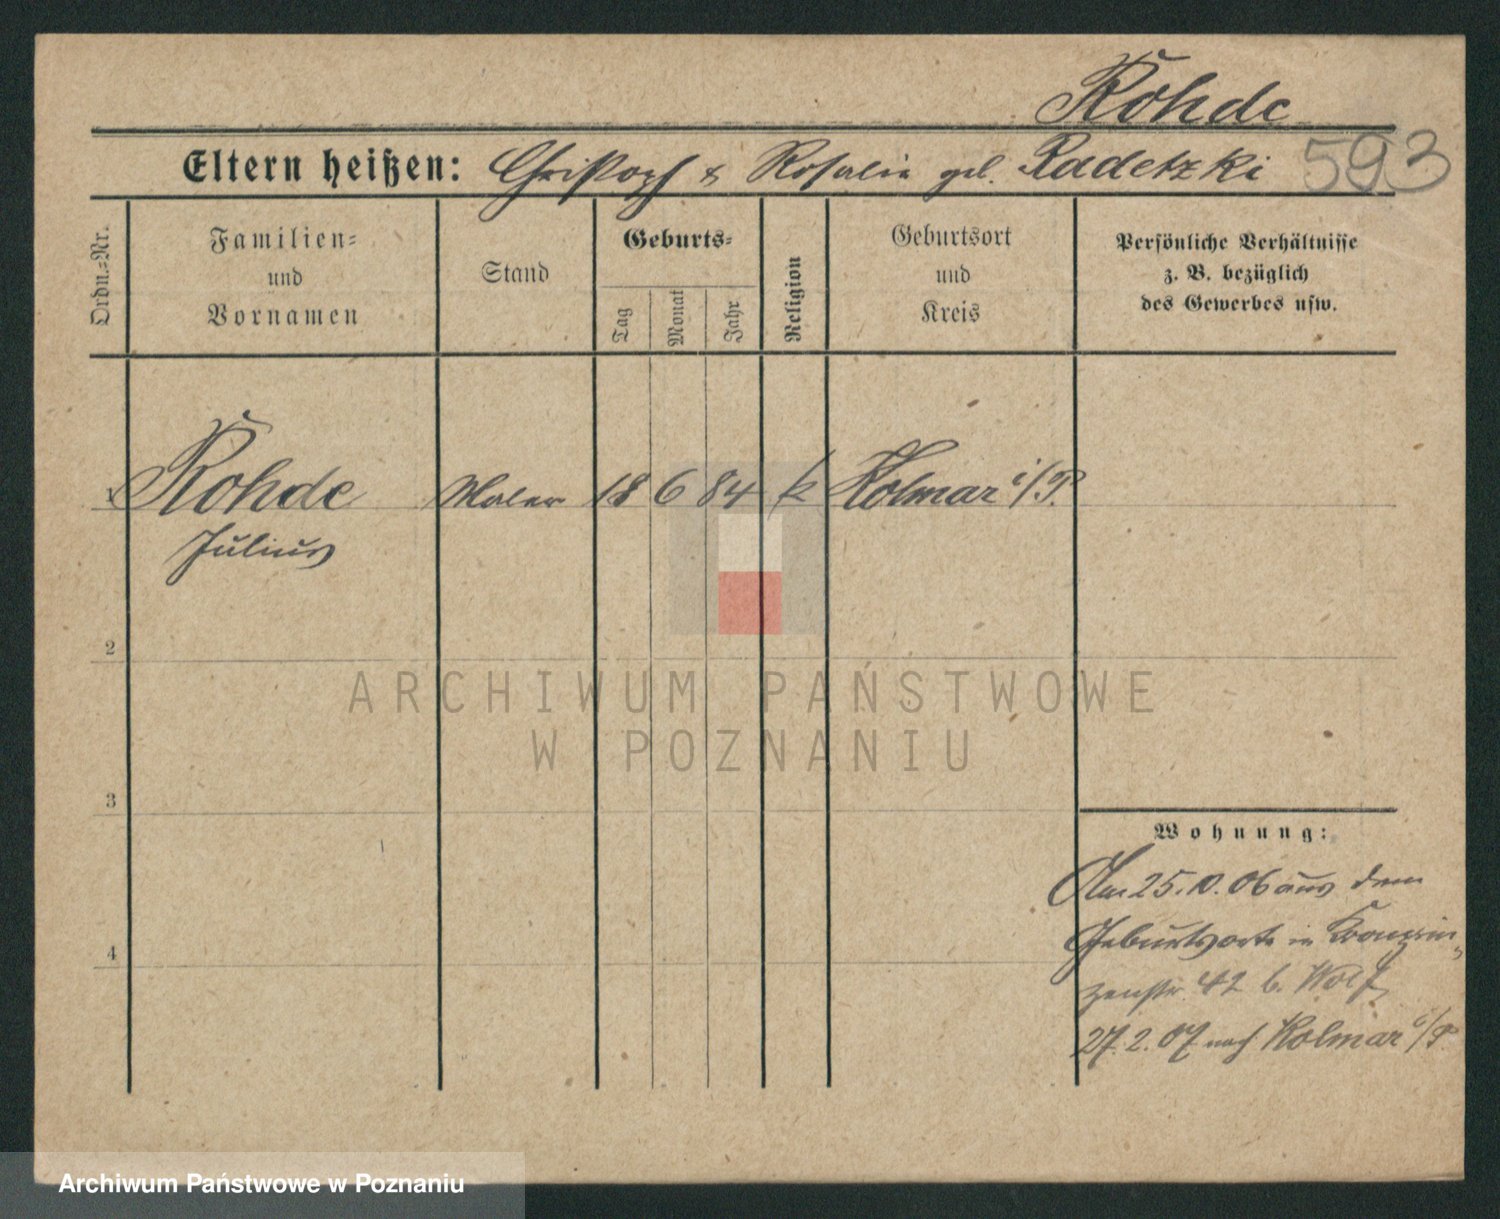 Rohde
Eltern heißen: Christoph & Rosalie geb. Radetzki 593
Ordn.-Nr.
Familien-
und
Vornamen
Stand
Geburts-
Tag
Monat
Jahr
Religion
Geburtsort
und
Kreis
Persönliche Verhältnisse
z. B. bezüglich
des Gewerbes usw.
1 Rohde Maler 18 6 84 k Kolmar i/P.
Julius
2
ARCHIWUM PAŃSTWOWE
W POZNANIU
3
Wohnung:
Am 25.10.06 aus dem
Geburtsorte in Kronprin-
4
zenstr. 42 b. Wolf
27.2.07 nach Kolmar i/P.
Archiwum Państwowe w Poznaniu